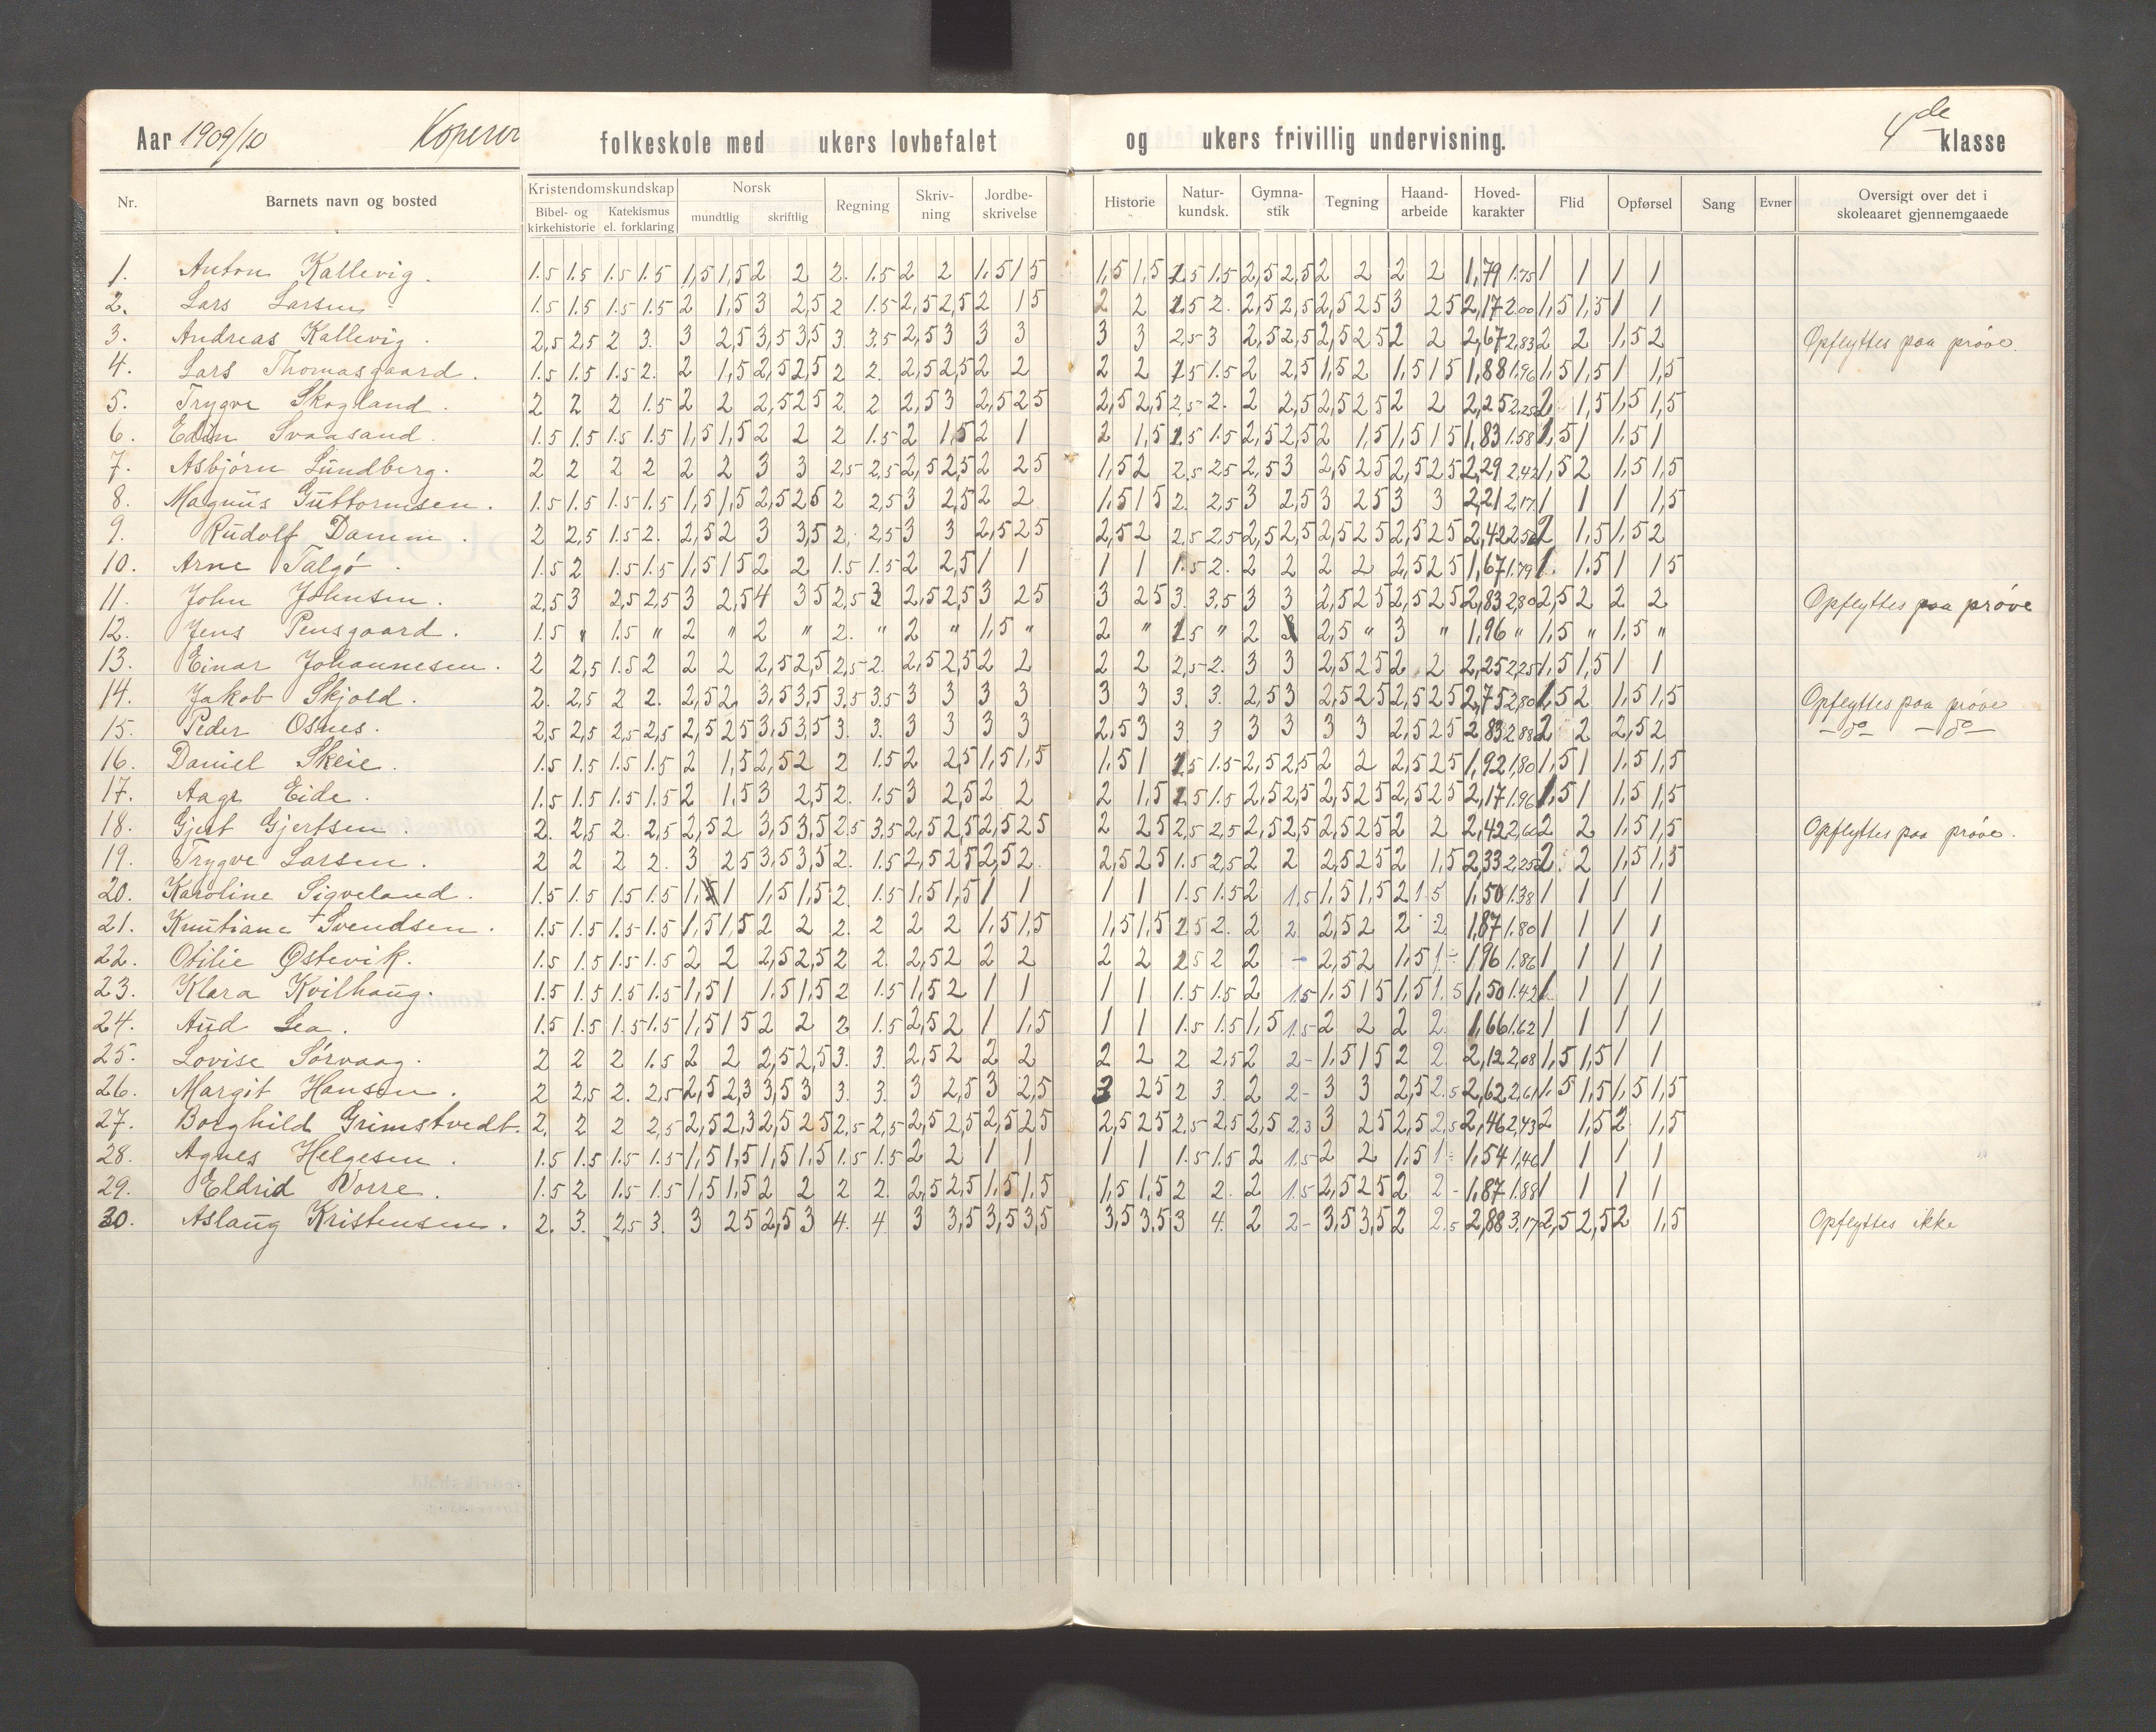 Aar 1909/10 Koperv folkeskole med ukers lovbefalet og ukers frivillig undervisning. 4de klasse
Nr. Barnets navn og bosted Kristendomskundskap Norsk Regning Skriv-ning Jordbe-skrivelse Historie Natur-kundsk. Gymna-stik Tegning Haand-arbeide Hoved-karakter Flid Opførsel Sang Evner Oversigt over det i skoleaaret gjennemgaaede
Bibel- og kirkehistorie Katekismus el. forklaring mundtlig skriftlig
1. Anton Kallevig. 1.5 1.5 1.5 1.5 1,5 1,5 2 2 2. 1.5 2 2 1,5 1 5 1,5 1,5 1.5 1.5 2,5 2,5 2 2 2 2 1,79 1.75 1 1 1 1
2. Lars Larsen 1.5 1.5 1.5 1.5 2 1,5 3 2,5 2 1.5 2,5 2,5 2 1 5 2 2 1.5 2. 2,5 2,5 2,5 2 5 3 2 5 2,17 2.00 1,5 1,5 1 1
3. Andreas Kallevig. 2,5 2,5 2 3. 3 2,5 3,5 3,5 3. 3.5 2,5 3 3 3 3 3 2.5 3 2,5 2,5 2,5 2 5 2 2 2,67 2,83 2 2 1,5 2 Opflyttes paa prøve.
4. Lars Thomasgaard. 1.5 1.5 1.5 2. 2 1,5 2,5 2,5 2 2. 2,5 2,5 2 2 2 2 1.5 1.5 2 2,5 1,5 2 1,5 1 5 1,88 1.96 1,5 1,5 1 1,5
5. Trygve Skogland. 2 2 2 1.5 2 2 2,5 2 5 2 2 2,5 3 2,5 2 5 2,5 2,5 2,5 2. 2 2,5 2,5 2 5 2 2 2,25 2,25 2. 1,5 1,5 1,5
6. Edin Svaasand. 1.5 1.5 1.5 1.5 1,5 1,5 2 2 2 1.5 2 1,5 2 1 2 1,5 1.5 1.5 2,5 2,5 2 1,5 1,5 1 5 1,83 1.58 1,5 1 1,5 1
7. Asbjørn Lundberg. 2 2 2 2 2 2 3 3 2,5 2,5 2,5 2,5 2 2 5 1,5 2 2.5 2.5 2,5 3 2,5 2 5 2,5 2 5 2,29 2,42 1,5 2 1,5 1,5
8. Magnus Guttormsen. 1.5 1.5 1.5 1.5 1,5 1,5 2,5 2 5 2 2,5 3 2,5 2 2 1,5 1 5 2. 2,5 3 2,5 3 2 5 3 3 2,21 2,17 1 1 1 1,5
9. Rudolf Damm. 2 2,5 1.5 2. 2,5 2 3 3,5 2. 2,5 3 3 2,5 2 5 2,5 2 2.5 2.5 2,5 2,5 2,5 2 5 2,5 2 5 2,42 2,50 2 1,5 1,5 2
10. Arne Talgø. 1.5 2 1.5 1.5 1,5 1 5 2 2 1.5 1.5 2 2,5 1 1 1 1 1.5 2. 2 2 2 2 2,5 2 5 1,67 1.79 1. 1.5 1 1 5
11. John Johnsen. 2,5 3 2,5 2,5 3 2,5 4 3 5 2,5 3 2,5 2,5 3 2 5 3 2 5 3. 3,5 3 3 2,5 2 5 2,5 2 5 2,83 2,80 2,5 2 2 2 Opflyttes paa prøve
12. Jens Pensgaard. 1.5 " 1.5 " 2 " 2 " 2. " 2 " 1,5 " 2 " 1.5 " 2 3 2,5 " 3 " 1,96 " 1,5 " 1,5 "
13. Einar Johannesen. 2 2,5 1.5 2 2 2 2,5 2,5 2,5 2. 2,5 2,5 2 2 2 2 2,5 2. 3 3 2,5 2 5 2 2 2,25 2,25 1,5 1,5 1 1
14. Jakob Skjold. 2. 2,5 2 2. 2,5 2. 3,5 3,5 3,5 3.5 3 3 3 3 3 3 3. 3. 2,5 3 2,5 2,5 2,5 2 5 2,75 2,80 1,5 2 1,5 1,5 Opflyttes paa prøve
15. Peder Osnes. 2,5 2,5 2,5 2,5 2,5 2 5 3,5 3,5 3. 3. 3 3 3 3 2,5 3 3. 3 3 3 3 3 2,5 2 5 2,83 2,88 2 2 2,5 2 — do — — do —
16. Daniel Skeie. 1.5 1.5 1.5 1.5 2 1,5 2,5 2 2 1.5 2 2,5 1,5 1,5 1,5 1 1.5 1.5 2,5 2,5 2 2 2,5 2 5 1,92 1,80 1,5 1 1,5 1,5
17. Aage Eide. 1.5 1.5 1.5 1.5 2 1,5 3 2,5 2. 1.5 3 2,5 2 2 2 1,5 1.5 1.5 2,5 2,5 2,5 2 5 2,5 2 5 2,17 1.96 1,5 1 1,5 1,5
18. Gjert Gjertsen. 2. 2,5 2. 2,5 2,5 2 3,5 3,5 2.5 3.5 2,5 2,5 2,5 2 5 2 2 5 2,5 2,5 2,5 2,5 2,5 2 5 2 2 2,42 2,62 2 2 1,5 1,5 Opflyttes paa prøve.
19. Trygve Larsen. 2 2 2 2. 3 2 5 3,5 3,5 2. 1.5 2,5 2 5 2,5 2. 2,5 2 5 1.5 2,5 2 2 2,5 2 5 2 1,5 2,33 2,25 2. 2 1,5 1,5
20. Karoline Sigveland. 1.5 1.5 1.5 1.5 1, 1 1,5 1,5 2. 1.5 1,5 1,5 1 1 1 1 1.5 1.5 2 1.5 1,5 1,5 2 1.5 1,50 1.38 1 1 1 1
21. Knutiane Svendsen. 1.5 1.5 1.5 1.5 1,5 1,5 2 2 2. 2 2 2 1,5 1,5 1,5 1,5 2 5 2. 2 2 2,5 2 2 2 1,87 1.80 1 1 1 1
22. Otilie Østevik. 1.5 1.5 1.5 1.5 2 2 2,5 2,5 2 2. 2,5 2 2 2 2 2 2 5 2 2 - 2,5 2 1,5 1 ÷ 1,96 1.86 1 1 1 1
23. Klara Kvilhaug. 1.5 1.5 1.5 1.5 1,5 1 1,5 1,5 2 1.5 1,5 2 1 1 1 1 1.5 1.5 2 1.5 1,5 1 5 1,5 1. 5 1,50 1.42 1. 1 1 1
24. Aud Lea. 1.5 1.5 1.5 1.5 1,5 1 5 2 2 2 1.5 2,5 2 1 1,5 1 1 1.5 1.5 1,5 1.5 2 2 2 2. 1,66 1.62 1 1 1 1
25. Lovise Sørvaag. 2 2 2 1.5 2 2 2,5 2,5 3. 3. 2,5 2 2 2 2 2 2 2,5 2 2- 1,5 1 5 2 2. 2,12 2,08 1,5 1,5 1 1
26. Margit Hansen. 2 2,5 2. 2,5 2,5 2,3 3,5 3 3. 3. 3 2,5 3 2,5 3 2 5 2 3. 2 2- 3 3 2,5 2.5 2,62 2,61 1.5 1,5 1,5 1,5
27. Borghild Grimstvedt. 2. 2 2 2,5 2,5 2,3 2,5 2 5 2,5 2,5 2,5 2,5 2,5 2 5 2,5 2 5 2.5 2.5 2,5 2,3 3 2 5 2,5 2,5 2,46 2,43 2 1,5 2 1,5
28. Agnes Helgesen. 1.5 1.5 1.5 1.5 1,5 1,5 1,5 1,5 1.5 1.5 2 2 1 1 1 1 1.5 1.5 2 1.5 2 2 1,5 1 ÷ 1,54 1,46 1 1 1 1
29. Eldrid Norre. 1.5 2 1.5 1.5 1,5 1,5 2 2 2 2. 2,5 2,5 1,5 1,5 1,5 1,5 2 2. 2 1.5 2,5 2 5 2 2 - 1,87 1.88 1 1 1 1
30. Aslaug Kristensen. 2. 3. 2,5 3. 3 2 5 2,5 3 4. 4. 3 3,5 3,5 3,5 3,5 3,5 3 4. 2 2- 3,5 3,5 2 2.5 2,88 3,17 2,5 2,5 2 1,5 Opflyttes ikke